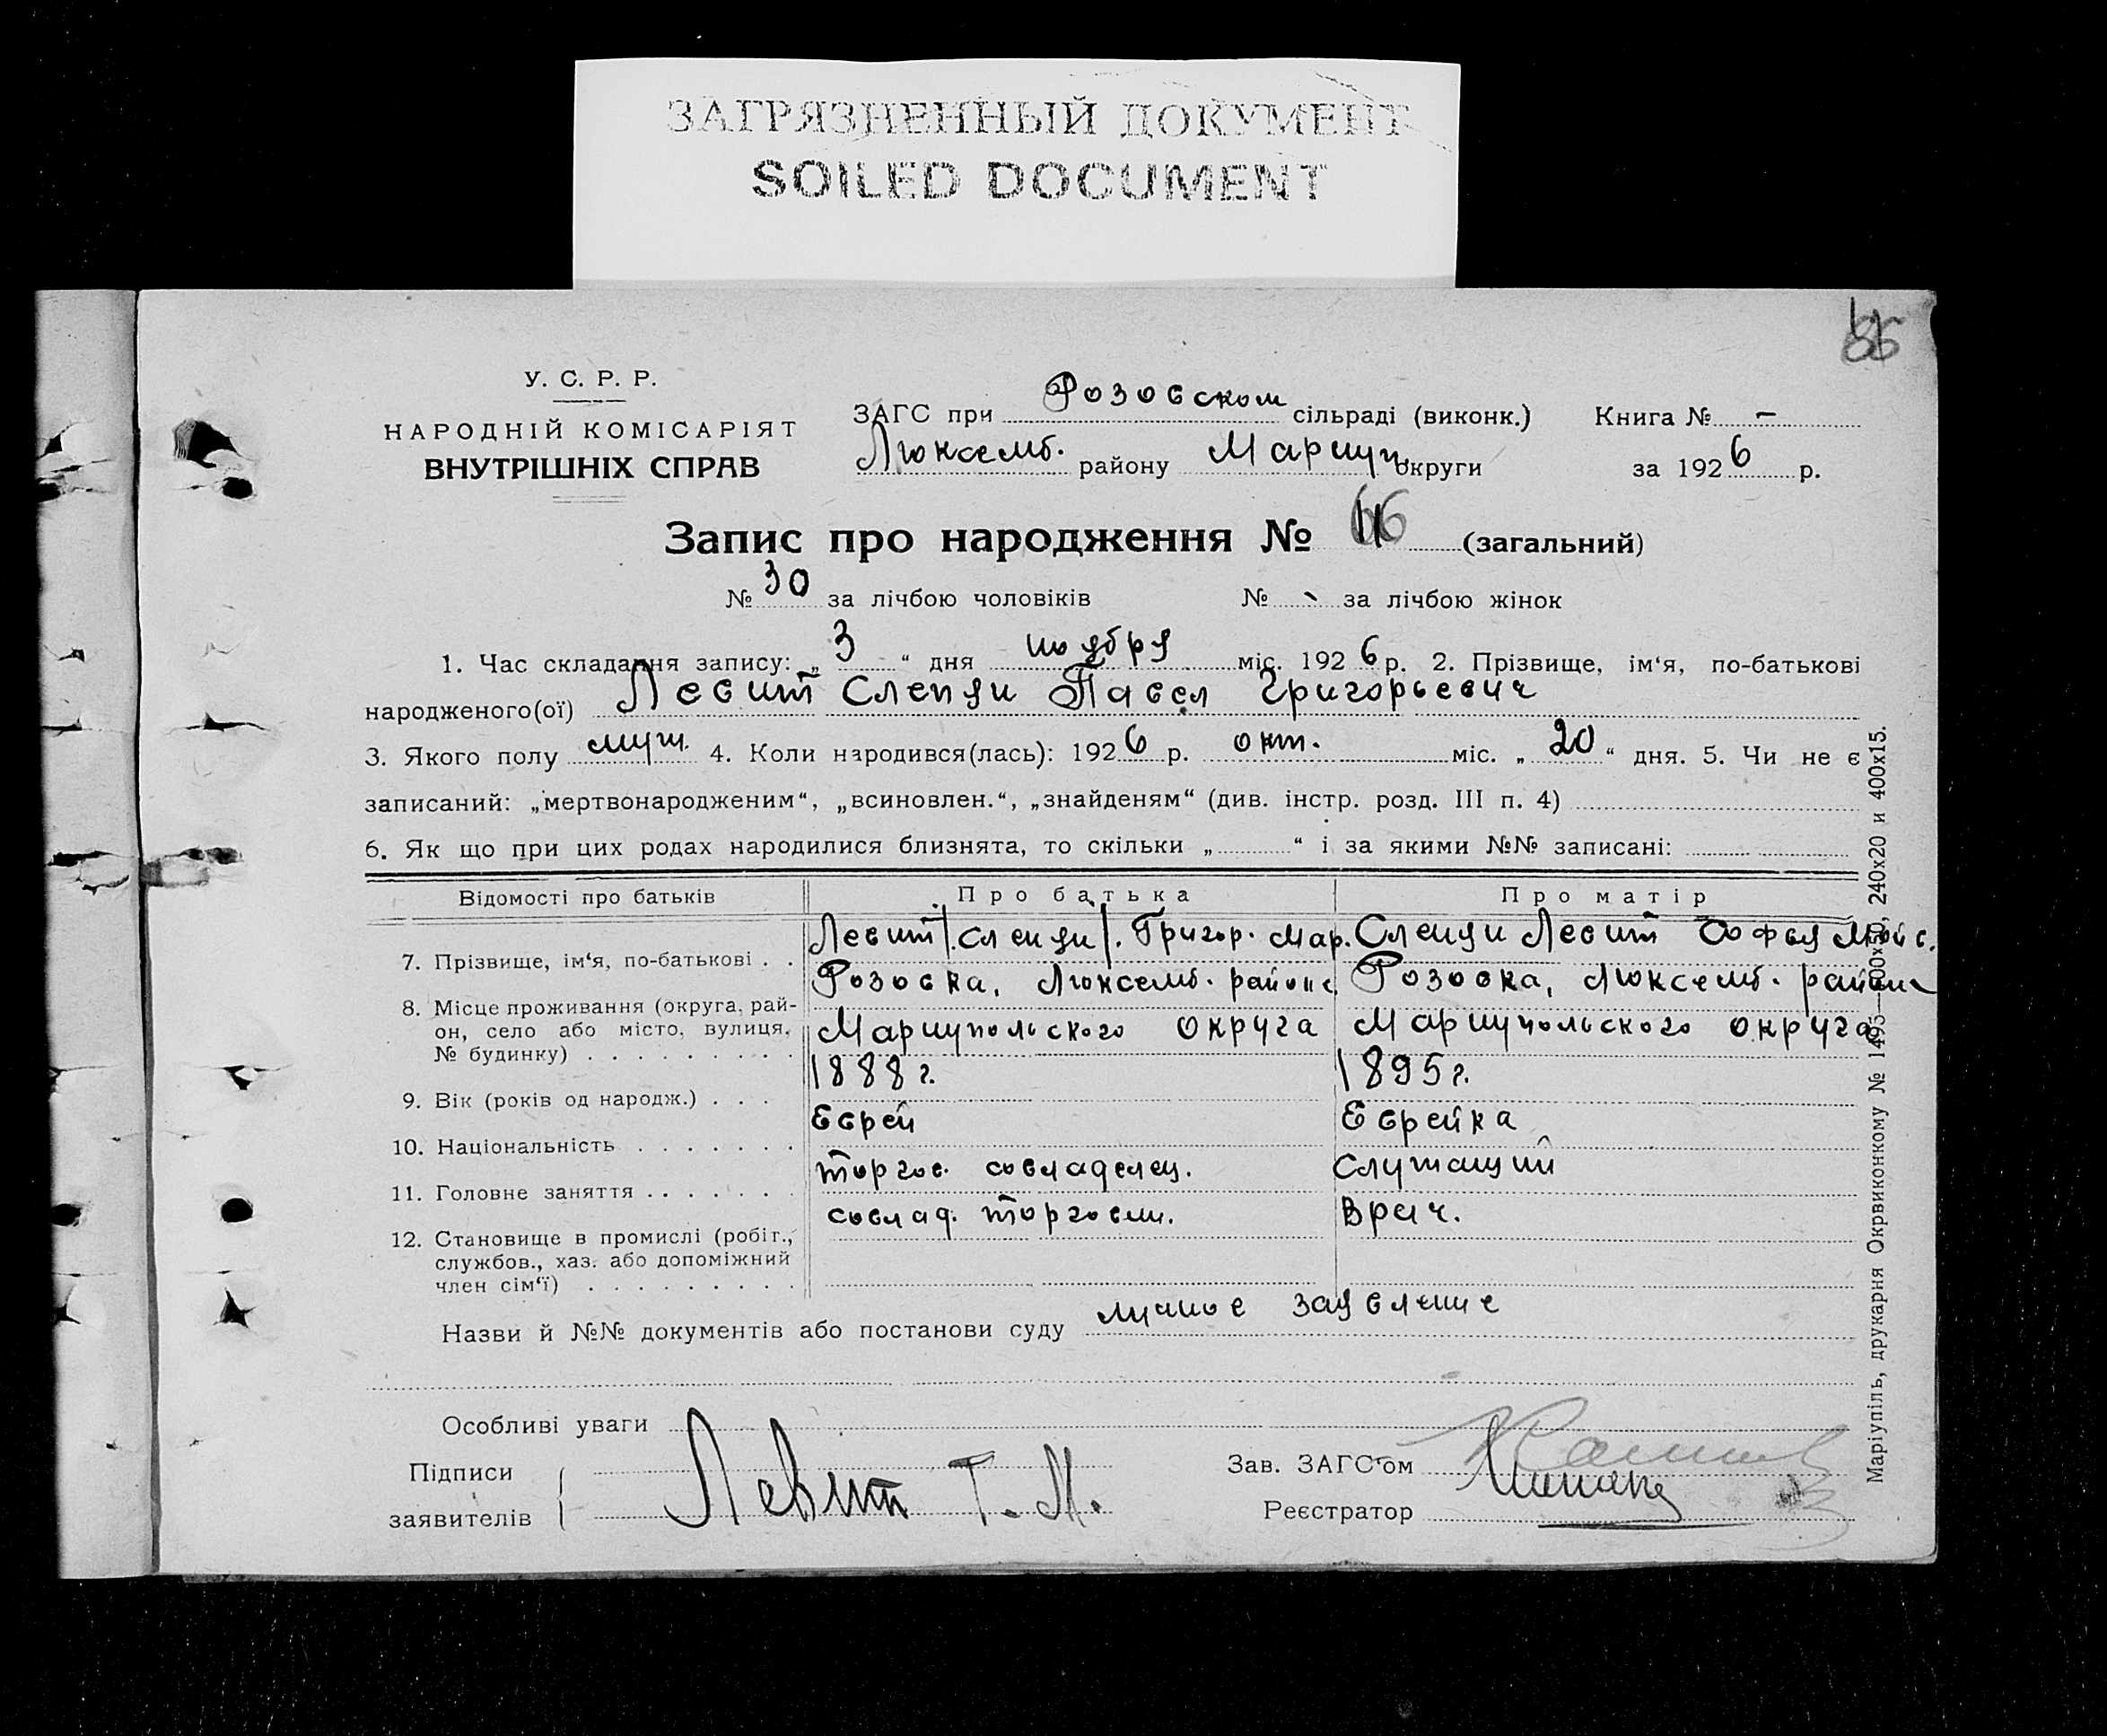 ЗАГРЯЗНЕННЫЙ ДОКУМЕНТ
SOILED DOCUMENT
У. С. Р. Р.
НАРОДНІЙ КОМІСАРІЯТ
ВНУТРІШНІХ СПРАВ
ЗАГС при Розовском сільраді (виконк.) Книга № –
Люксемб. району Мариуп. округи за 1926 р.
Запис про народження № (загальний)
№ 30 за лічбою чоловіків № - за лічбою жінок
1. Час складання запису: „3“ дня ноября міс. 1926 р. 2. Прізвище, ім‘я, по-батькові
народженого(ої) Левит Слепян Павел Григорьевич
3. Якого полу муж. 4. Коли народився(лась): 1926 р. окт. міс. „20“ дня. 5. Чи не є
записаний: „мертвонародженим“, „всиновлен.“, „знайденям“ (див. інстр. розд. III п. 4)
6. Як що при цих родах народилися близнята, то скільки „ “ і за якими №№ записані:
Відомості про батьків Про батька Про матір
7. Прізвище, ім‘я, по-батькові . . Левит /Слепян/. Григор. Мар. Слепян Левит Софья Мойс.
8. Місце проживання (округа, рай- Розовка, Люксемб. района Розовка, Люксемб. района
он, село або місто, вулиця, Мариупольского округа Мариупольского округа
№ будинку) . . . . . . . . .
9. Вік (років од народж.) . . . 1888 г. 1895 г.
10. Національність . . . . . . . Еврей Еврейка
11. Головне заняття . . . . . . . торгов. совладелец. Служащий
12. Становище в промислі (робіг., совлад. торговли. Врач.
службов., хаз. або допоміжний
член сім‘ї) . . . . . . . . .
Назви й №№ документів або постанови суду личное заявление
Особливі уваги
Підписи
заявителів Левит Г. М.
Зав. ЗАГС‘ом
Реєстратор
Маріупіль, друкарня Окрвиконкому № 1495—500x50, 240x20 и 400x15.